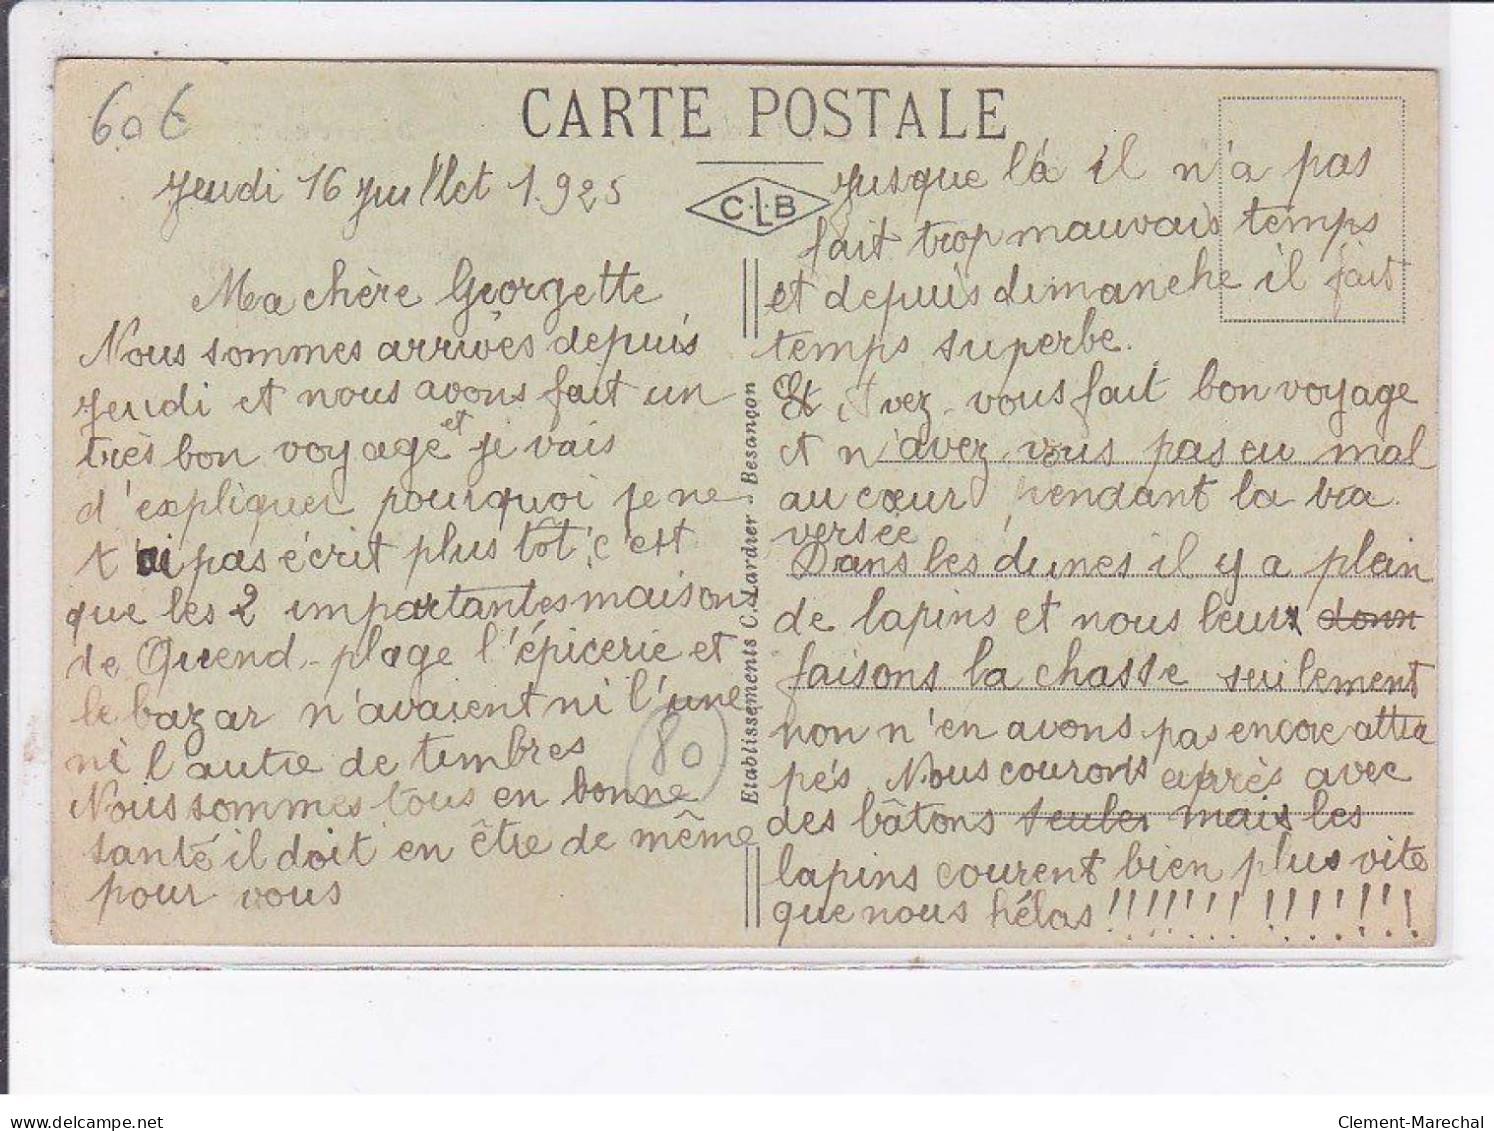 60€
CARTE POSTALE
C.L.B
Jeudi 16 juillet 1.925
Ma chère Georgette
Nous sommes arrivés depuis
jeudi et nous avons fait un
très bon voyage et je vais
d'expliquer pourquoi je ne
t'ai pas écrit plus tôt, c'est
que les 2 impartantes maisons
de Quend-plage l'épicerie et
le bazar n'avaient ni l'une
ni l'autre de timbres
Nous sommes tous en bonne
santé il doit en être de même
pour vous
80
Etablissements C. Lardier - Besançon
Jusque là il n'a pas
fait trop mauvais temps
et depuis dimanche il fait
temps superbe.
Et Avez-vous fait bon voyage
et n'avez-vous pas eu mal
au cœur pendant la tra
versée
Dans les dunes il y a plein
de lapins et nous leur donn
faisons la chasse seulement
non n'en avons pas encore attra
pés. Nous courons après avec
des bâtons seules mais les
lapins courent bien plus vite
que nous hélas !!!!!!! !!!!!!!
delcampe.net
Clement-Marechal